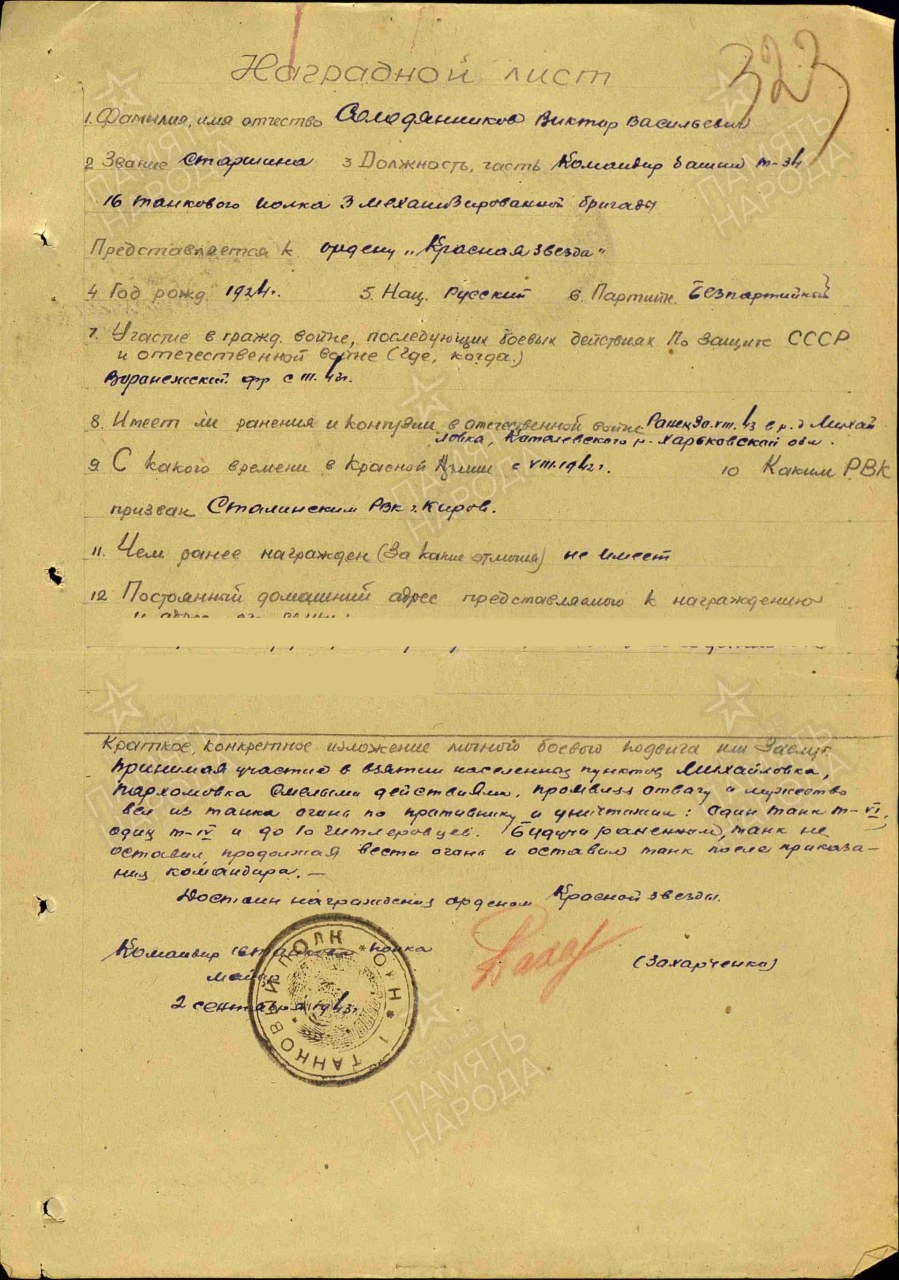 323
Наградной лист
1. Фамилия, имя отчество Солодянников Виктор Васильевич
2 Звание Старшина 3 Должность, часть Командир башни Т-34
16 танкового полка 3 механизированной бригады
Представляется к ордену „Красная Звезда"
4. Год рожд. 1924г. 5. Нац. Русский 6. Партийн. Безпартийной
7. Участие в гражд. войне, последующих боевых действиях по защите СССР
и отечественной войне (где, когда.)
Воронежский фр с III.43г.
8. Имеет ли ранения и контузии в отечественной войне Ранен 30.VIII.43 в р. д Михай
ловка, Котелевского р. Харьковской обл.
9. С какого времени в Красной Армии с VIII.1942г. 10 Каким РВК
призван Сталинским РВК г. Киров.
11. Чем ранее награжден (за какие отличия) не имеет
12. Постоянный домашний адрес представляемого к награждению
Краткое, конкретное изложение личного боевого подвига или заслуг
Принимая участие в взятии населенных пунктов Михайловка,
Пархомовка смелыми действиями, проявляя отвагу и мужество
вел из танка огонь по противнику и уничтожил: один танк Т-VI,
один Т-IV и до 10 гитлеровцев. Будучи раненным, танк не
оставил, продолжая вести огонь и оставил танк после приказа-
ния командира. —
Достоин награждения орденом Красной звезды.
Командир 16 танкового полка
майор (Захарченко)
2 сентября 1943г.
ТАНКОВЫЙ ПОЛК
ПАМЯТЬ НАРОДА